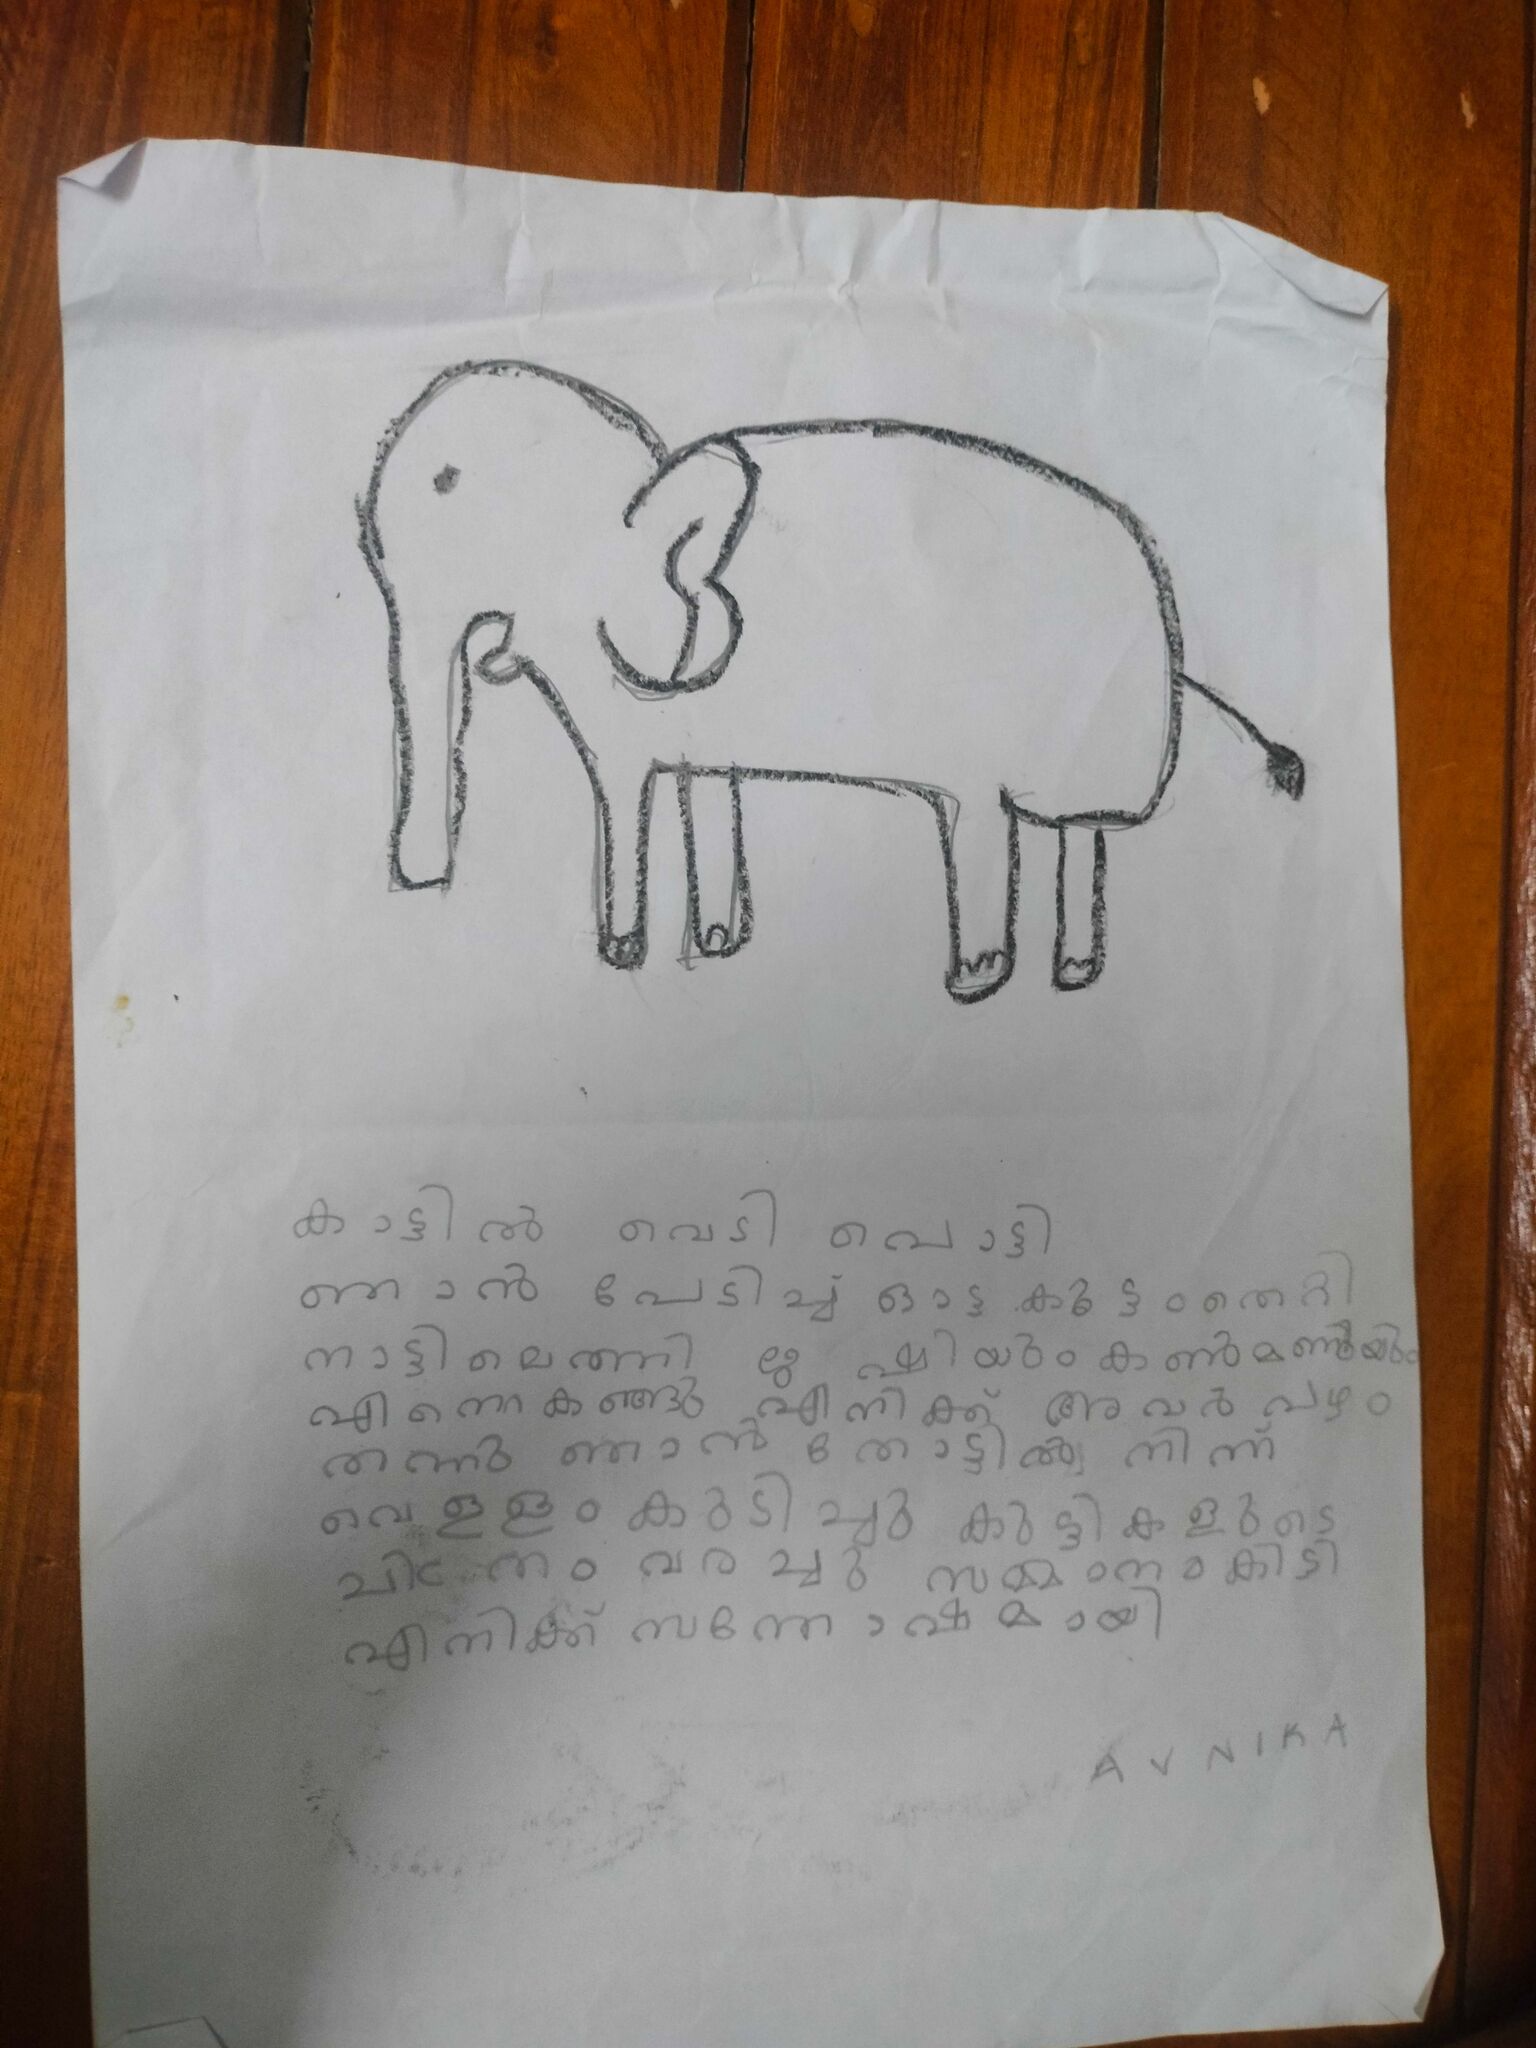 കാട്ടിൽ വെടി പൊട്ടി
ഞാൻ പേടിച്ച് ഓട്ട കൂട്ടംതെറ്റി
നാട്ടിലെത്തി ഋഷിയും കൺമണിയും
എന്നെകണ്ടു എനിക്ക് അവർ പഴം
തന്നു ഞാൻ തോട്ടിൽ നിന്ന്
വെള്ളം കുടിച്ചു കുട്ടികളുടെ
ചിത്രം വരച്ചു സമ്മാനം കിട്ടി
എനിക്ക് സന്തോഷമായി
AVNIKA